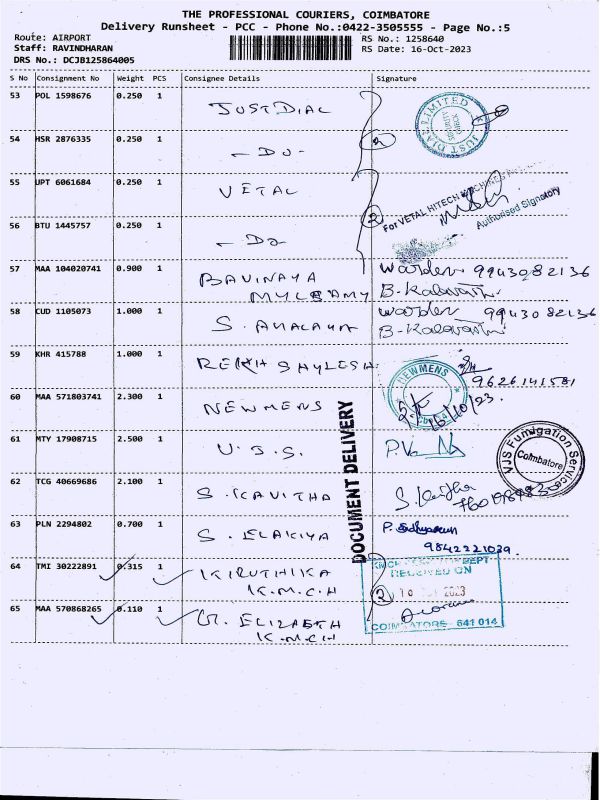 THE PROFESSIONAL COURIERS, COIMBATORE
Delivery Runsheet - PCC - Phone No.:0422-3505555 - Page No.:5
Route: AIRPORT RS No.: 1258640
Staff: RAVINDHARAN RS Date: 16-Oct-2023
DRS No.: DCJB125864005
S No Consignment No Weight PCS Consignee Details Signature
53 POL 1598676 0.250 1 JUST DIAL
JUST DIAL LIMITED
54 HSR 2876335 0.250 1 - DO - 2
55 UPT 6061684 0.250 1 VETAL
For VETAL HITECH MACHINES
Authorised Signatory
56 BTU 1445757 0.250 1 - Do 2
57 MAA 104020741 0.900 1 BAVINAYA warden 9943082136
MYLSAMY B. Kalavathi
58 CUD 1105073 1.000 1 S. warden 9943082136
B-Kalavathi
59 KHR 415788 1.000 1 REKH SHYLESH
9626141581
60 MAA 571803741 2.300 1 NEWMENS
NEWMENS
16/10/23.
61 MTY 17908715 2.500 1 U.B.S. P.V
VJS Fumigation Service
Coimbatore
DOCUMENT DELIVERY
62 TCG 40669686 2.100 1 S. KAVITHA S.
63 PLN 2294802 0.700 1 S. ELAKIYA P.
9842221039.
64 TMI 30222891 0.315 1 KIRUTHIKA
K.M.C.H
RECEIVED ON
2023
65 MAA 570868265 0.110 1 ELIZABETH 2
K.M.C.H
COIMBATORE - 641 014